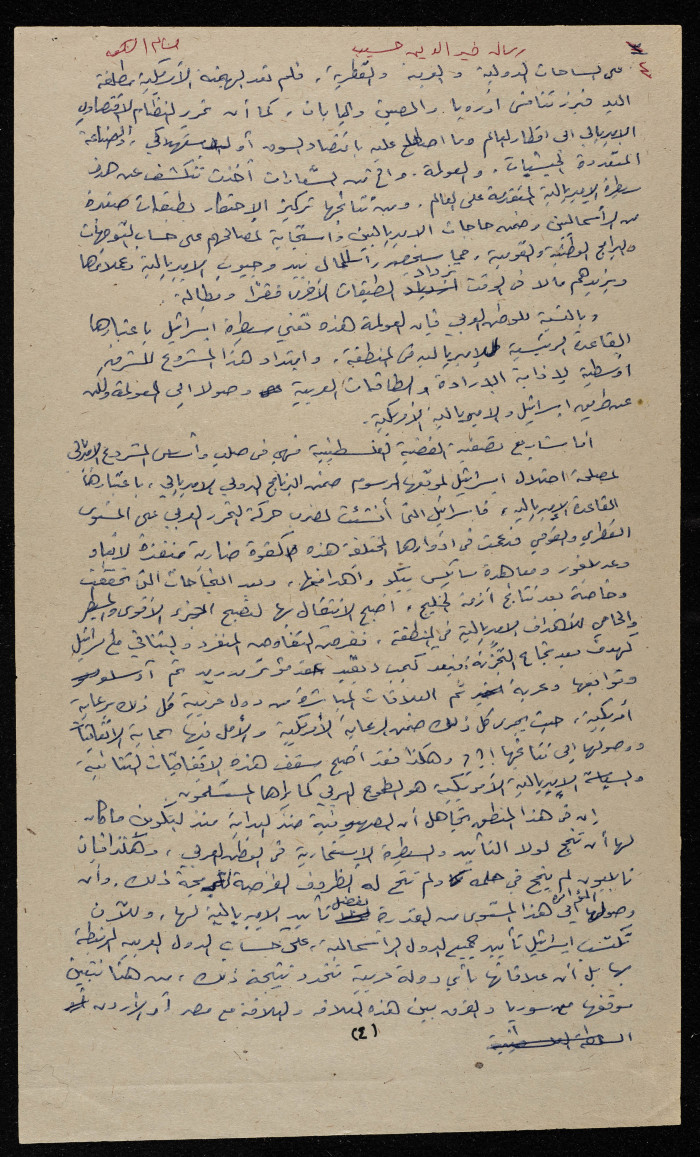 رسالة خير الدين حسيب
٤
على الساحات الدولية والعربية والقطرية، فلم تعد الهيمنة الأمريكية مطلقة
اليد فبرز تنافس أوروبا والصين واليابان، كما أن تحرر النظام الاقتصادي
الامبريالي الى اقطار العالم وما اصطلح عليه باقتصاد السوق أو الاستهلاكي، والصناعة
المتعددة الجنسيات، والعولمة، وا من الشعارات أخذت تتكشف عن هدف
سيطرة الامبريالية المتفردة على العالم. ومن نتائجها تركيز الاحتكار لطبقات صغيرة
من الرأسماليين رهينة حاجات الامبرياليين واستجابة لمصالحهم على حساب التوجهات
والبرامج الوطنية والقومية، مما سينحصر رأس المال بيد وجيوب الامبريالية وعملائها
ويزيدهم مالا في الوقت تزداد الطبقات الأخرى فقرا وبطالة.
وبالنسبة للوطن العربي فإن العولمة هذه تعني سيطرة اسرائيل باعتبارها
القاعدة الرئيسية للامبريالية في المنطقة، وامتداد هذا المشروع للشرق
أوسطية لإذابة الإرادة والطاقات العربية وصولا الى العولمة ولكن
عن طريق اسرائيل والامبريالية الأمريكية.
أما مشاريع تصفية القضية الفلسطينية فهي في صلب وأساس المشروع الامبريالي
لمصلحة احتلال اسرائيل لموقعها المرسوم ضمن البرنامج الدولي الامبريالي، باعتبارها
القاعدة الامبريالية، فاسرائيل التي أنشئت لضرب حركة التحرر العربي على المستوى
القطري والقومي قد لعبت في ادوارها المختلفة هذه كقوة ضاربة منفذة لأبعاد
وعد بلفور ومعاهدة سايكس بيكو وأهدافها، وبعد النجاحات التي تحققت
وخاصة بعد نتائج أزمة الخليج، أصبح الانتقال بها لتصبح الجزء الأقوى والمسيطر
والحامي للأهداف الامبريالية في المنطقة، ففرض التفاوض المنفرد والثنائي مع اسرائيل
كهدف بعد نجاح التجزئة فبعد كمب ديفيد مؤتمر مدريد ثم أوسلو
وتوابعها وعربة ثم العلاقات المباشرة من دول عربية كل ذلك برعاية
أمريكية، حيث يجري كل ذلك ضمن الرعاية الأمريكية والأمل فيها حماية الاتفاقات
ووصولها الى نتائجها!؟؟ وهكذا فقد أصبح سقف هذه الاتفاقيات الثنائية
والسياسة الامبريالية الأمريكية هو الطموح العربي كما يراها المستسلمون.
إن في هذا المنطق تجاهل أن الصهيونية منذ البداية منذ التكوين ما كان
لها أن تنجح لولا التأييد والسيطرة الاستعمارية في الوطن العربي، وهكذا فإن
نابليون لم ينجح في حلمه ولم تتح له الظروف الفرصة نتيجة ذلك. وأن
وصولها الى هذا المستوى من القدرة بفضل تأييد الامبريالية لها، وللآن
تكتسب اسرائيل تأييد جميع الدول الرأسمالية، على حساب الدول العربية المرتبطة
بها بل أن علاقاتها بأي دولة عربية تتحدد نتيجة ذلك، من هنا نتبين
موقفها مع سوريا والفرق بين هذه العلاقة والعلاقة مع مصر أو الأردن
(٤)